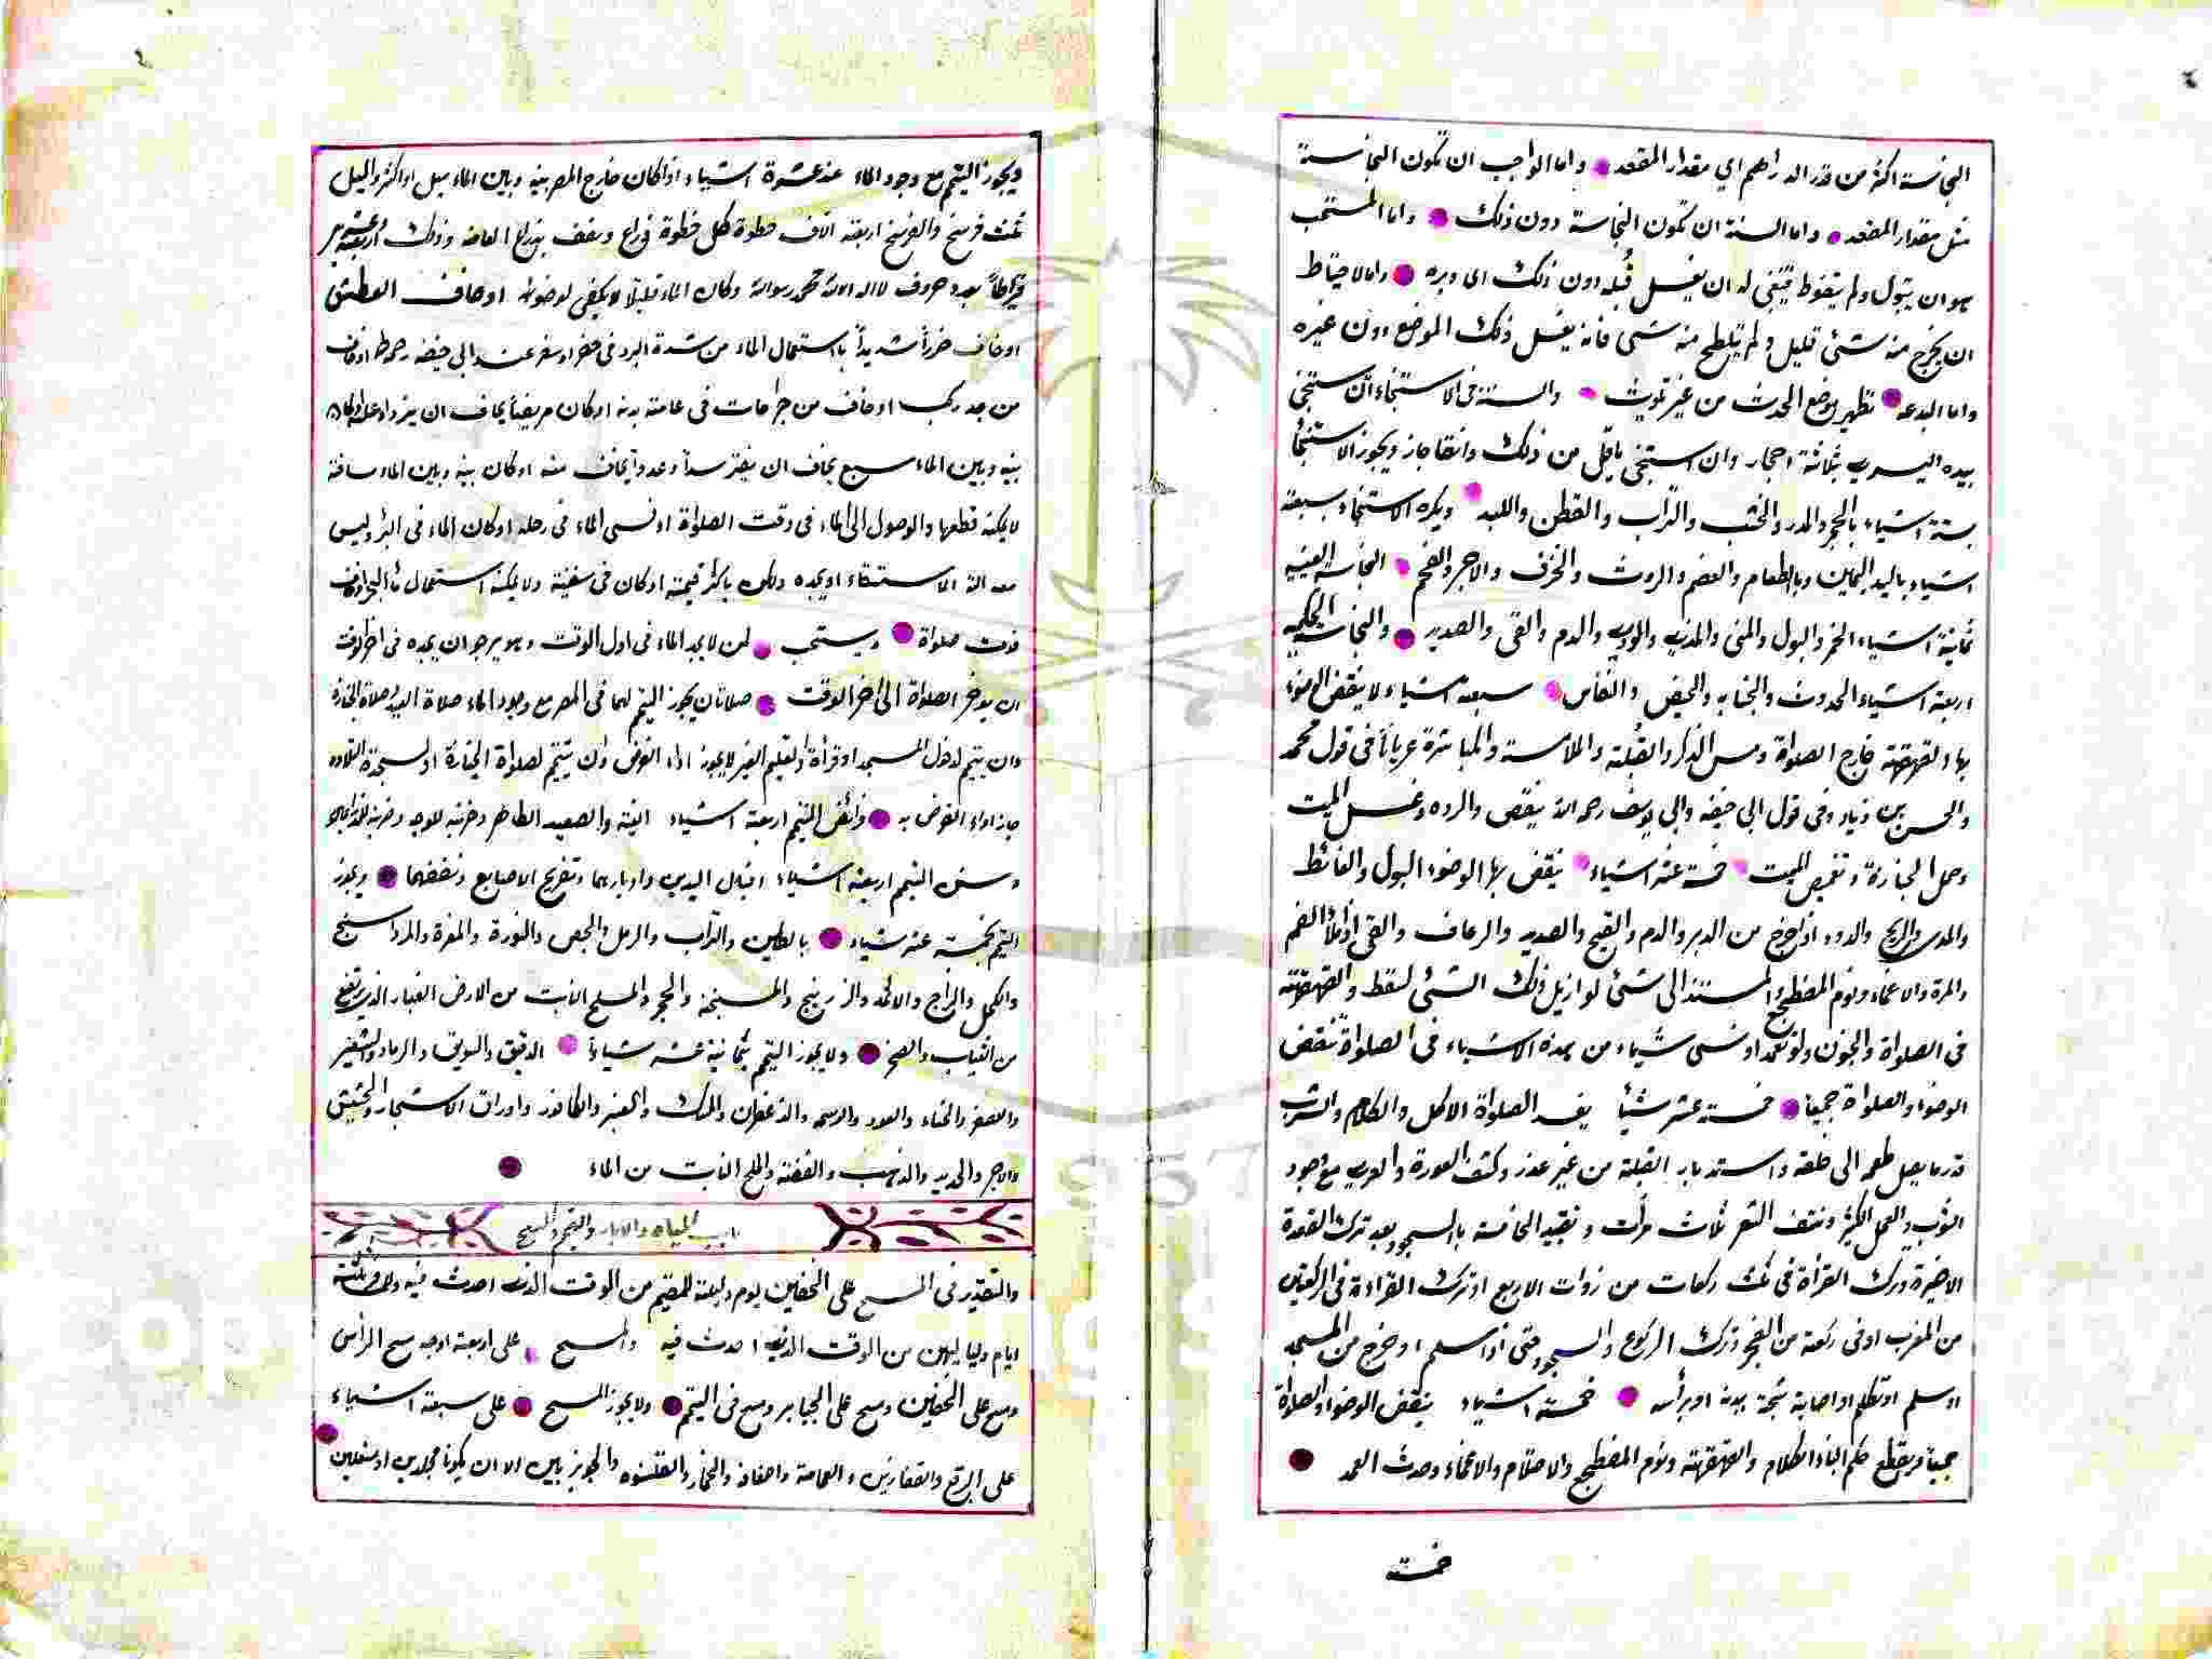 النجاسة اكثر من قدر الدراهم اي مقدار المقعد واما الواجب ان تكون النجاسة
مثل مقدار المقعد واما السنة ان تكون النجاسة دون ذلك واما المستحب
هو ان يبول ولم يتغوط فينبغي له ان يغسل قبله دون ذلك اى دبره واما الاحتياط
ان يخرج منه شئ قليل ولم يتلطح منه شئ فانه يغسل ذلك الموضع دون غيره
واما البدعه تطهير موضع الحدث من غير تلويث والسنة فى الاستنجاء ان يستنجى
بيده اليسرى بثلاثة احجار وان استنجى باقل من ذلك وانقا جاز ويجوز الاستنجأ
بستة اشياء بالحجر والمدر والخشب والتراب والقطن واللبد ويكره الاستنجاء بسبعة
اشياء باليد اليمين وبالطعام والعضم والروث والخزف والاجر والفحم النجاسة العينيه
ثمانية اشياء الخمر والبول والمنى والمذى والودى والدم والقى والصديد والنجاسة الحكميه
اربعة اشياء الحدوث والجنابه والحيض والنفاس سبعة اشياء لا ينقض الوضوء
بها القهقهة خارج الصلواة ومس الذكر والقبلة والملامسة والمباشرة عرياناً فى قول محمد
والحسن بن زياد وفى قول ابى حنيفه وابى يوسف رحمه الله ينقض والرده وغسل الميت
وحمل الجنازة وتغميض الميت خمسة عشر اشياء ينقض بها الوضوء البول والغائط
والمدى والريح والدود اذا خرج من الدبر والدم والقيح والصديد والرعاف والقى اذا ملأ الفم
والمرة والاغماء ونوم المضطجع والمستند الى شئ لو ازيل ذلك الشئ لسقط والقهقهة
فى الصلواة والجنون ولو تعمد او نسى شياء من هذه الاشياء فى الصلواة تنقض
الوضوا والصلواة جميعاً خمسة عشر شيأ يفسد الصلواة الاكل والكلام والشرب
قدر ما يصل طعمه الى حلقه واستدبار القبلة من غير عذر وكشف العورة والعرى مع وجود
الثوب والعمل الكثير ونتف الشعر ثلاث مرأت وتقييد الخامسة بالسجود بعد ترك القعدة
الاخيرة وترك القرأة فى ثلث ركعات من ذوات الاربع او ترك القراءة فى الركعتين
من المغرب او فى ركعة من الفجر وترك الركوع والسجود حتى اذا سلم او خرج من المسجد
او سلم او تكلم او اصابة شجة بيده او برأسه خمسة اشياء ينقض الوضوا والصلواة
جميعاً ويقطع حكم البناء الكلام والقهقهة ونوم المضطجع والاحتلام والاغماء وحدث العمد
خمسة
ويجوز التيمم مع وجود الماء عند عشرة اشياء اذا كان خارج المصر بينه وبين الماء ميل او اكثر والميل
ثلث فرسخ والفرسخ اربعة الاف خطوة كل خطوة ذراع ونصف بذراع العامة وذلك اربعة وعشرين
قيراطاً بعدد حروف لا اله الا الله محمد رسول الله وكان الماء قليلاً لا يكفى لوضوئه او خاف العطش
او خاف ضرراً شديداً باستعمال الماء من شدة البرد فى حضر او سفر عند ابى حنيفه رحمه الله او خاف
من جدرى او خاف من جراحات فى عامة بدنه او كان مريضاً يخاف ان يزداد علة او كان
بينه وبين الماء سبع يخاف ان يفترسه او عدواً يخاف منه او كان بينه وبين الماء مسافة
لا يمكنه قطعها والوصول الى الماء فى وقت الصلواة او نسى الماء فى رحله او كان الماء فى البئر وليس
معه الة الاستقاء او يجده ولكن باكثر قيمته او كان فى سفينة ولا يمكنه استعمال ماء البحر او خاف
فوت صلواة ويستحب لمن لا يجد الماء فى اول الوقت وهو يرجو ان يجده فى اخر الوقت
ان يوخر الصلواة الى اخر الوقت صلاتان يجوز التيمم لهما فى المصر مع وجود الماء صلاة العيد وصلاة الجنازة
وان يتيمم لدخول المسجد او قرأة او لتعليم الغير لا يجوز اداء الفرض وان يتيمم لصلواة الجنازة او لسجدة التلاوه
جاز اداء الفرض به وفرائض التيمم اربعة اشياء النية والصعيد الطاهر وضربة للوجه وضربة للذراعين
وسنن التيمم اربعة اشياء اقبال اليدين وادبارهما وتفريج الاصابع ونفضهما ويجوز
التيمم بخمسة عشر شياء بالطين والتراب والرمل والجص والنورة والمغرة والمرداسنج
والكحل والزاج والاثمد والزرنيخ والسبخة والحجر والملح النابت من الارض الغبار الذى يرتفع
من الثياب والصخر ولا يجوز التيمم بثمانية عشر شياءً الدقيق والسويق والرماد والشعير
والعصفر والحناء والعود والوسمه والزعفران والمسك والعنبر والكافور واوراق الاشجار والحشيش
والاجر والحديد والذهب والفضة والملح النابت من الماء
باب المياه والابار والتيمم والمسح
والتقدير فى المسح على الخفين يوم وليلة للمقيم من الوقت الذى احدث فيه وللمسافر ثلثة
ايام ولياليهن من الوقت الذى احدث فيه والمسح على اربعة اوجه مسح الرأس
ومسح على الخفين ومسح على الجبابر ومسح فى التيمم ولا يجوز المسح على سبعة اشياء
على البرقع والقفازين والعمامة والخمار والقلنسوه والجوربين الا ان يكونا مجلدين او منعلين